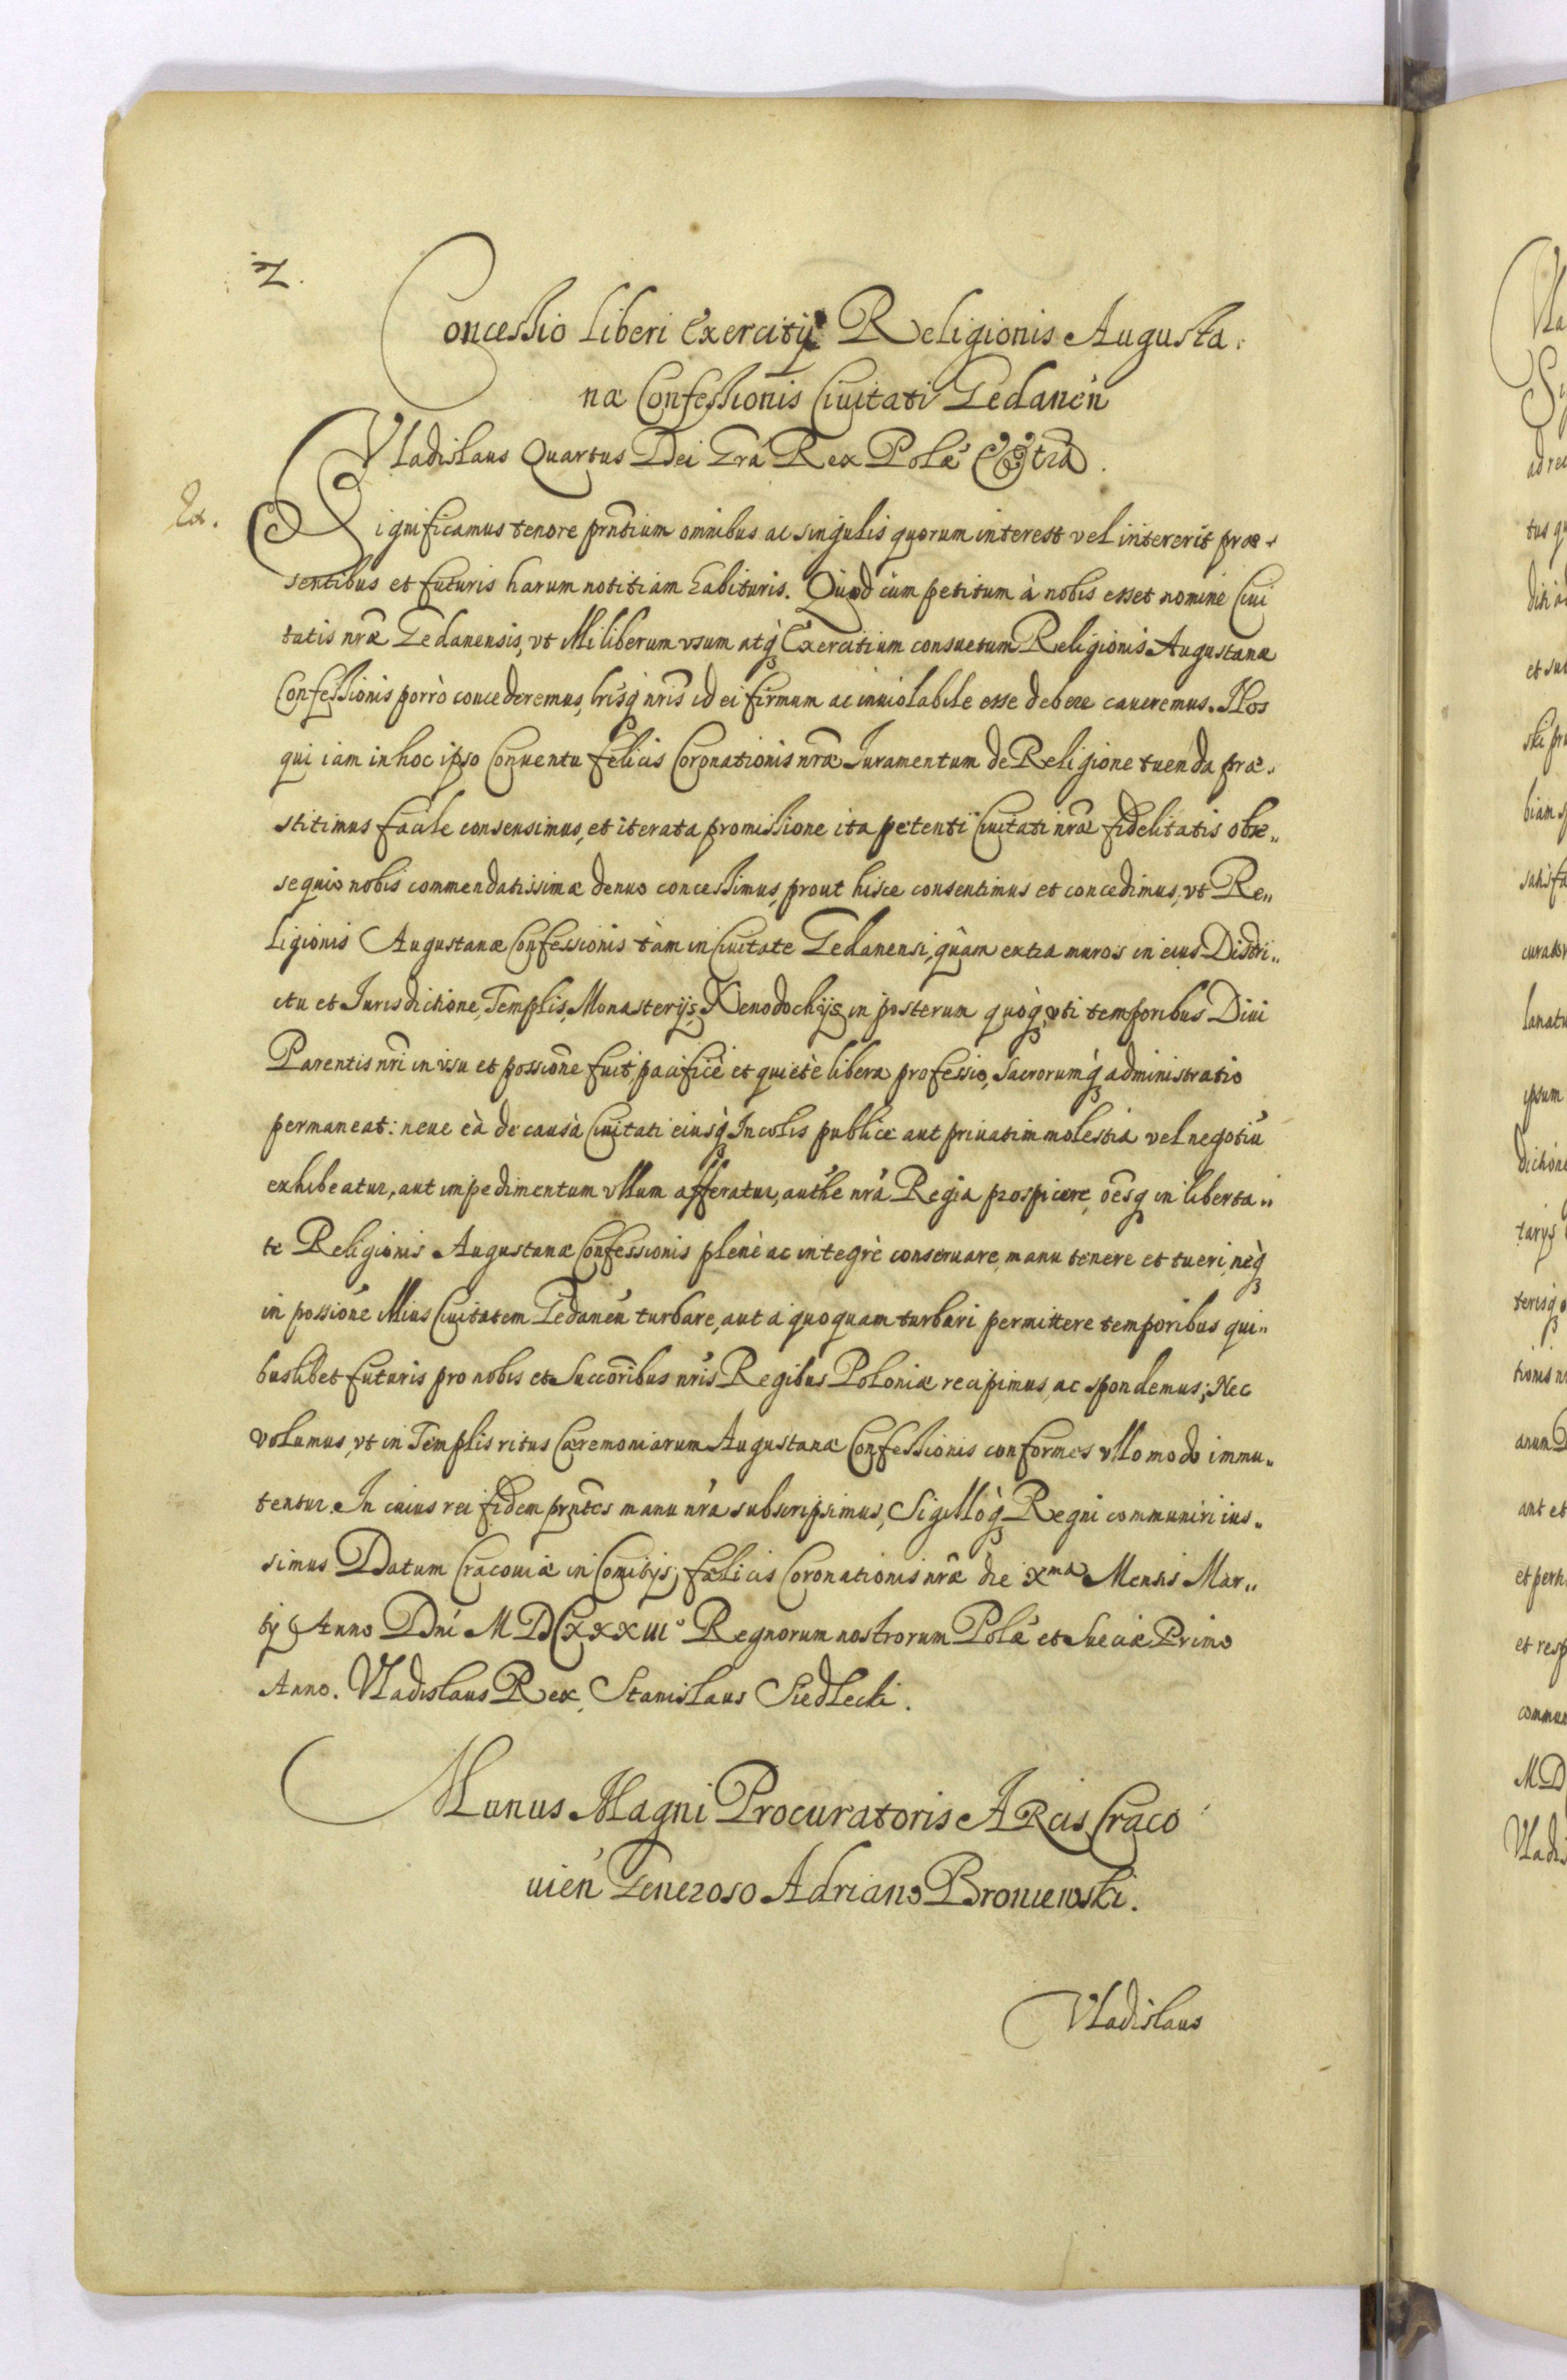 2.
Concessio liberi Exercitij Religionis Augusta,
næ Confessionis Ciuitati Gedanen̄
Vladislaus Quartus Dei Gra Rex Polæ Etra.
Ex.
Significamus tenore prn̄tium omnibus ac singulis quorum interest vel intererit præ,
sentibus et futuris harum notitiam habituris. Quod cùm petitum à nobis esset nomine Ciui
tatis nr̄æ Gedanensis, vt illi liberum vsum atq Exercitium consuetum Religionis Augustanæ
Confessionis porrò concederemus, lrīsq nrīs id ei firmum ac inuiolabile esse debere caueremus. Nos
qui iam in hoc ipso Conuentu felicis Coronationis nr̄æ Iuramentum de Religione tuenda præ,
stitimus facile consensimus, et iterata promissione ita petenti Ciuitati nr̄æ fidelitatis obse„
sequio nobis commendatissimæ denuo concessimus, prout hisce consentimus et concedimus, vt Re„
ligionis Augustanæ Confessionis tàm in Ciuitate Gedanensi, quàm extra muros in eius Distri„
ctu et Iurisdictione, Templis, Monasterijs, Xenodochijs in posterum quoq, vti temporibus Diui
Parentis nr̄i in vsu et possiōne fuit, pacificè et quietè libera professio, Sacrorumq administratio
permaneat: neue eà de causà Ciuitati eiusq Incolis publicè aut priuatim molestia vel negotiū
exhibeatur, aut impedimentum vllum afferatur, authe nr̄a Regia prospicere, oēsq in liberta„
te Religionis Augustanæ Confessionis plenè ac integrè conseruare, manu tenere et tueri, neq
in possiōne illius Ciuitatem Gedanen̄ turbare, aut à quoquam turbari permittere temporibus qui„
buslibet futuris pro nobis et Succōribus nrīs Regibus Poloniæ recipimus, ac spondemus; Nec
volumus, vt in Templis ritus Cæremoniarum Augustanæ Confessionis conformes vllo modo immu„
tentur. In cuius rei fidem prn̄tes manu nr̄a subscripsimus, Sigilloq Regni communiri ius„
simus Datum Cracouiæ in Comitijs fœlicis Coronationis nr̄æ die Xma Mensis Mar„
tij Anno Dni MDCXXXIIIo Regnorum nostrorum Polæ et Sueciæ Primo
Anno. Vladislaus Rex, Stanislaus Siedlecki.
Munus Magni Procuratoris Arcis Craco
uien̄ Generoso Adriano Broniewski.
Vladislaus